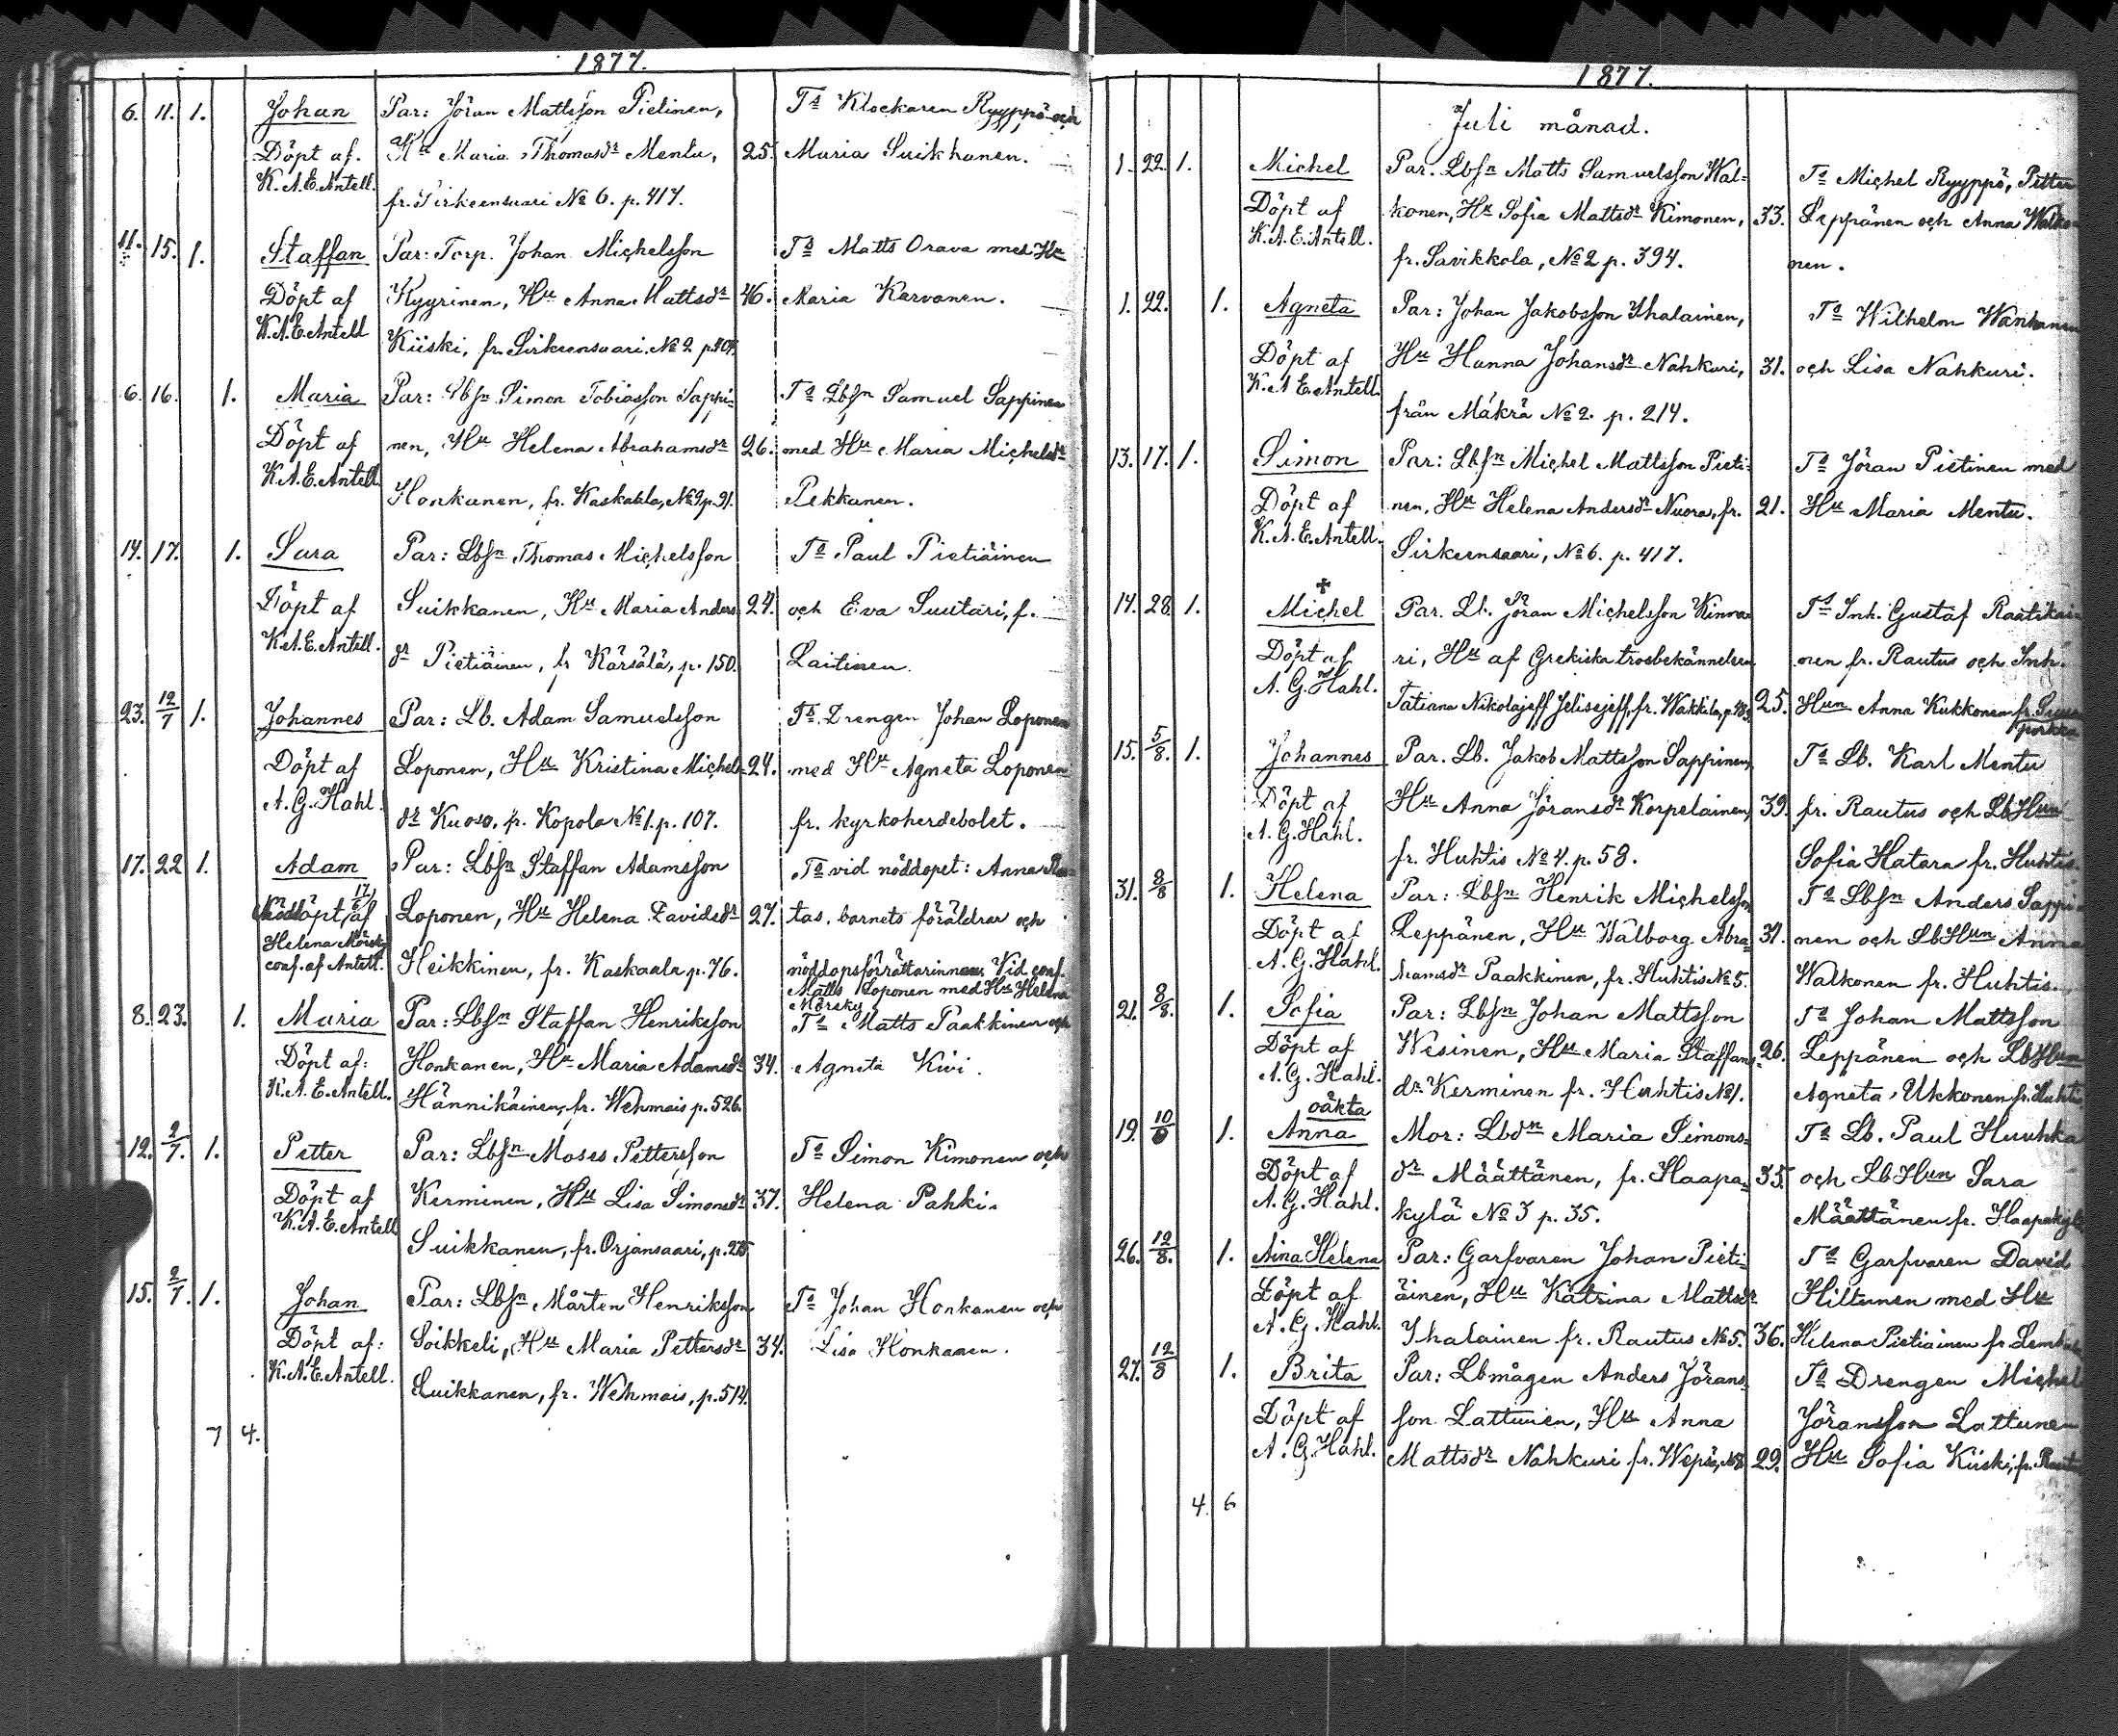 1877.
6. 11. 1. Johan Par: Jöran Mattsson Pietinen, Ts Klockaren Ryyppö och
Döpt af. Hu Maria Thomasdr Mentu, 25. Maria Suikkanen.
K. A. E. Antell. fr. Sirkeensaari No 6. p. 417.
11. 15. 1. Staffan Par: Torp. Johan Michelsson Ts Matts Orava med Hu
Döpt af Kyyrinen, Hu Anna Mattsdr 46. Maria Karvanen.
K. A. E. Antell Kiiski, fr. Sirkeensaari. No 2 p. 404.
6. 16. 1. Maria Par: Lbsn Simon Tobiasson Sappi- Ts Lbsn Samuel Sappinen
Döpt af nen, Hu Helena Abrahamsdr 26. med Hu Maria Michelsdr
K. A. E. Antell Honkanen, fr. Kaskaala, No 2 p. 91. Pekkanen.
14. 17. 1. Sara Par: Lbsn Thomas Michelsson Ts Paul Pietiäinen
Döpt af Suikkanen, Hu Maria Anders 24. och Eva Suutari, f.
K. A. E. Antell. dr Pietiäinen, fr Kärsälä, p. 150. Laitinen.
23. 12/7 1. Johannes Par: Lb. Adam Samuelsson Ts. Drengen Johan Loponen
Döpt af Loponen, Hu Kristina Michels- 24. med Hu Agneta Loponen
A. G. Hahl. dr Kuosa, fr. Kopola No 1. p. 107. fr. kyrkoherdebolet.
17. 22 1. Adam Par: Lbsn Staffan Adamsson Ts vid nöddopet: Anna
Nöddöpt 17/6 af Loponen, Hu Helena Davidsdr 27. tas, barnets föräldrar och
Helena Mörsky Heikkinen, fr. Kaskaala p. 76. nöddopsförrättarinnan. Vid conf.
conf. af Antell. Matts Loponen med Hu Helena
Mörsky
8. 23. 1. Maria Par: Lbsn Staffan Henriksson Ts Matts Paakkinen och
Döpt af: Honkanen, Hu Maria Adamsdr 34. Agneta Kivi.
K. A. E. Antell. Hännikäinen, fr. Wehmais p. 526.
12. 2/7. 1. Petter Par: Lbsn Moses Pettersson Ts Simon Kimonen och
Döpt af Kerminen, Hu Lisa Simonsdr 37. Helena Pahki.
K. A. E. Antell Suikkanen, fr. Orjansaari, p.
15. 2/7. 1. Johan Par: Lbsn Mårten Henriksson Ts Johan Honkanen och
Döpt af: Soikkeli, Hu Maria Pettersdr 34. Lisa Honkanen.
K. A. E. Antell. Suikkanen, fr. Wehmais, p. 514.
7 4.
1877.
Juli månad.
1. 22. 1. Michel Par. Lbsn Matts Samuelsson Wal= Ts Michel Ryyppö, Petter
Döpt af konen, Hu Sofia Mattsdr Kimonen, 33. Leppänen och Anna Walko-
K. A. E. Antell. fr. Savikkola, No 2 p. 394. nen.
1. 22. 1. Agneta Par: Johan Jakobsson Ihalainen, Ts Wilhelm Wanhanen
Döpt af Hu Hanna Johansdr Nahkuri, 31. och Lisa Nahkuri.
K. A E. Antell. från Mäkrä No 2. p. 214.
13. 17. 1. Simon Par: Lbsn Michel Mattsson Pieti- Ts Jöran Pietinen med
Döpt af nen, Hu Helena Andersdr Nuora, fr. 21. Hu Maria Mentu.
K. A. E. Antell. Sirkeensaari, No 6. p. 417.
14. 28. 1. Michel Par. Lb. Jöran Michelsson Kinna- Ts Inh. Gustaf Raatikai-
Döpt af ri, Hu af Grekiska trosbekännelsen nen fr. Rautus och Inh.
A. G. Hahl. Tatiana Nikolajeff Jelisejeff, fr. Wakkila, 25. Hun Anna Kukkonen fr.
15. 5/8. 1. Johannes Par. Lb. Jakob Mattsson Sappinen, Ts Lb. Karl Mentu
Döpt af Hu Anna Jöransdr Korpelainen, 39. fr. Rautus och LbHun
A. G. Hahl. fr. Huhtis No 4. p. 58. Sofia Hatara fr. Huhtis.
31. 8/8 1. Helena Par: Lbsn Henrik Michelsson Ts Lbsn Anders Sappi-
Döpt af Leppänen, Hu Walborg Abra= 31. nen och LbHun Anna
A. G. Hahl. hamsdr Paakkinen, fr. Huhtis No 5. Walkonen fr. Huhtis.
21. 8/8. 1. Sofia Par: Lbsn Johan Mattsson Ts Johan Mattsson
Döpt af Wesinen, Hu Maria Staffans- 26. Leppänen och LbHun
A. G. Hahl. dr Kerminen fr. Huhtis No 1. Agneta Ukkonen fr. Huhtis
oäkta
19. 10/8 1. Anna Mor: Lbdn Maria Simons- Ts Lb. Paul Huuhka
Döpt af dr Määttänen, fr. Haapa- 35. och LbHun Sara
A. G. Hahl. kylä No 3 p. 35. Määttänen fr. Haapakylä
26. 12/8. 1. Aina Helena Par: Garfvaren Johan Pieti- Ts Garfvaren David
Döpt af äinen, Hu Katrina Mattsdr Hiltunen med Hu
A. G. Hahl. Ihalainen fr. Rautus No 5. 36. Helena Pietiäinen fr.
27. 12/8 1. Brita Par: Lbmågen Anders Jörans- Ts Drengen Michel
Döpt af son Lattunen, Hu Anna Jöransson Lattunen
A. G. Hahl. Mattsdr Nahkuri fr. Wepsä, 29. Hu Sofia Kiiski, fr.
4. 6